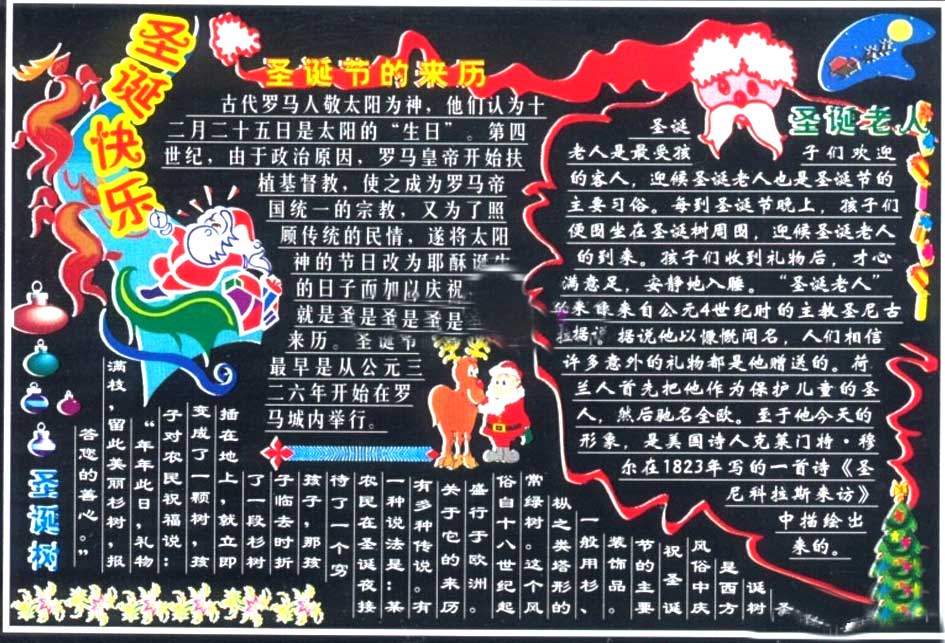 圣诞快乐
圣诞节的来历
古代罗马人敬太阳为神，他们认为十
二月二十五日是太阳的“生日”。第四
世纪，由于政治原因，罗马皇帝开始扶
植基督教，使之成为罗马帝
国统一的宗教，又为了照
顾传统的民情，遂将太阳
神的节日改为耶酥诞生
的日子而加以庆祝
就是圣是圣是圣是
来历。圣诞节
最早是从公元三
二六年开始在罗
马城内举行。
圣诞老人
圣诞
老人是最受孩子们欢迎
的客人，迎候圣诞老人也是圣诞节的
主要习俗。每到圣诞节晚上，孩子们
便围坐在圣诞树周围，迎候圣诞老人
的到来。孩子们收到礼物后，才心
满意足，安静地入睡。“圣诞老人”
的来源来自公元4世纪时的主教圣尼古
拉据说 据说他以慷慨闻名，人们相信
许多意外的礼物都是他赠送的。荷
兰人首先把他作为保护儿童的圣
人，然后驰名全欧。至于他今天的
形象，是美国诗人克莱门特·穆
尔在1823年写的一首诗《圣
尼科拉斯来访》
中描绘出
来的。
圣诞树
圣
诞树
是西方
风俗中庆
祝圣诞
节的主要
装饰品。
一般用杉、
枞之类塔形的
常绿树。这个风
俗自十八世纪起
盛行于欧洲。
关于它的来历
有多种传说。有
一种说法是：某
农民在圣诞夜接
待了一个穷
孩子，那孩
子临去时折
了一段杉树
插在地上，就立即
变成了一颗树，孩
子对农民祝福说：
“年年此日，礼物
满枝，留此美丽杉树，报
答您的善心。”